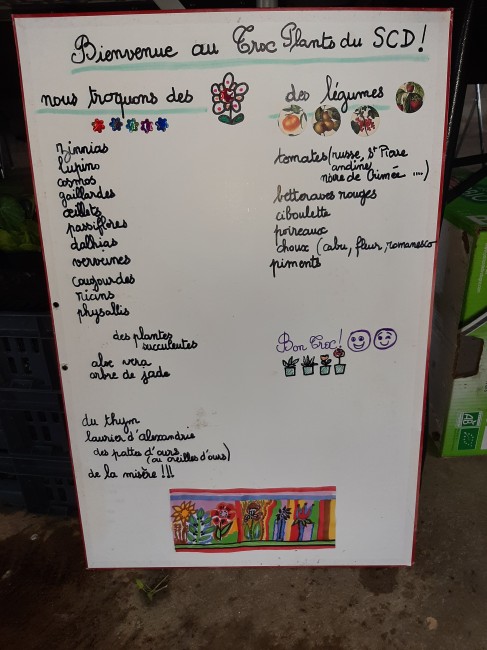 Bienvenue au Troc Plants du SCD!
nous troquons des
zinnias
lupins
cosmos
gaillardes
œillets
passiflores
dalhias
verveines
cougourdes
ricins
physallis
des plantes
succulentes
aloe vera
arbre de jade
du thym
laurier d'alexandrie
des pattes d'ours
(ou oreilles d'ours)
de la misère !!!
des légumes
tomates (russe, St Piare
andine
noire de Crimée ....)
betteraves rouges
ciboulette
poireaux
choux (cabu, fleur, romanesco
piments
Bon Troc!
AB